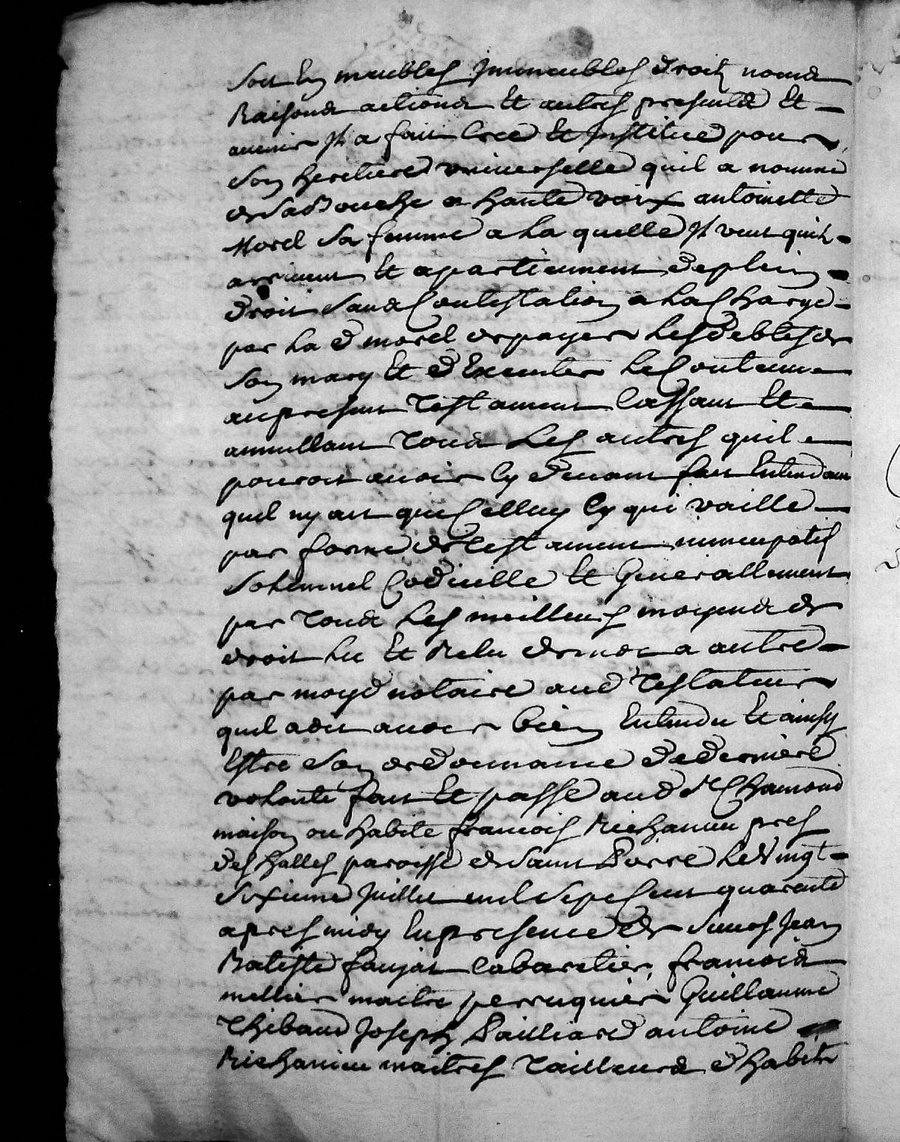 soit En meubles Jmmeubles droits noms
Raisons actions Et autres presents Et
auenir Jl a fait Cree Et Jnstitue pour
Son heretiere vniverselle quil a nommé
de sa Bouche a haute voix antoinette
Morel sa femme a la quelle Jl veut quils
arriuent Et apartiennent de plein
droit sans Contestation a la Charge
par la d morel de payer les debtes de
son mary Et d'Executer le Contenu
au present Testament Cassant Et
annullant Tous Les autres quil
pouroit auoir Cy deuant fait Entendant
quil ny ait que Celluy Cy qui vaille
par forme de Testament nuncupatif
Solemnel Codicille Et Generallement
par Tous Les meilleurs moyens de
droit Lu Et Relu de mot a autre
par moy d notaire aud Testateur
quil a dit auoir bien Entendu Et ainsy
Estre son ordonnance de derniere
volonté fait Et passé aud St Chamond
maison ou habite francois Richanieu pres
des halles paroisse de Saint Pierre le Vingt
Sixieme Juillet mil Sept Cent quarante
apres midy En presence de Sieurs Jean
Batiste faujat Cabaretier, francois
mellier maitre perruquier Guillaume
Thibaud Joseph Pailliard antoine
Richanieu maitres Tailleurs d'habits